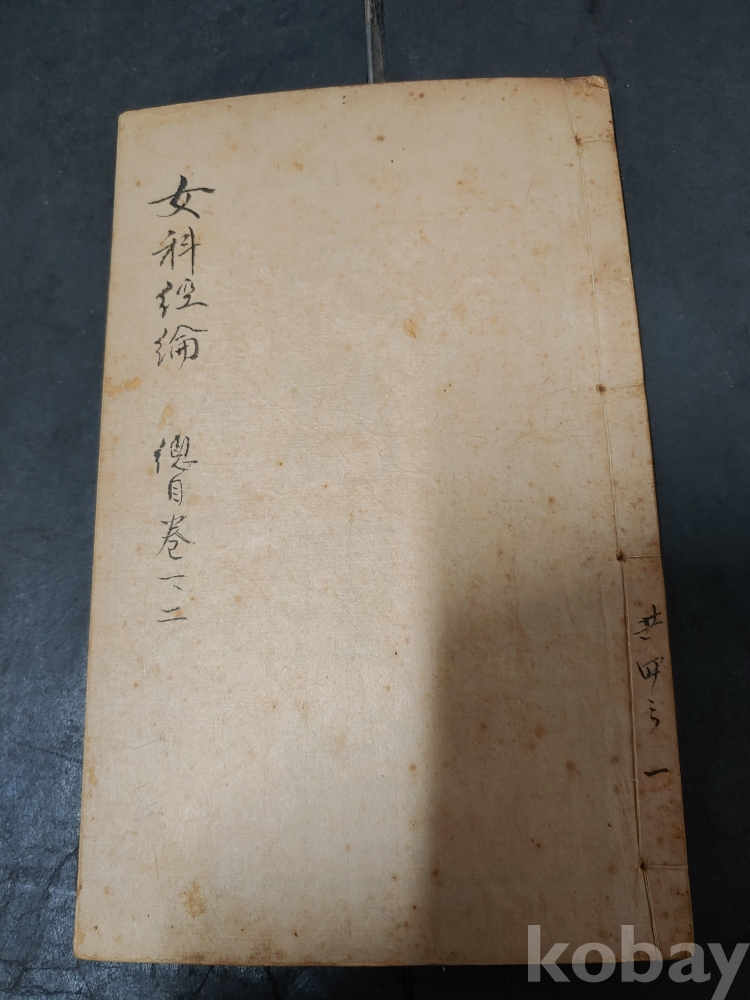 女科經綸
總目卷一、二
共四之一
kobay